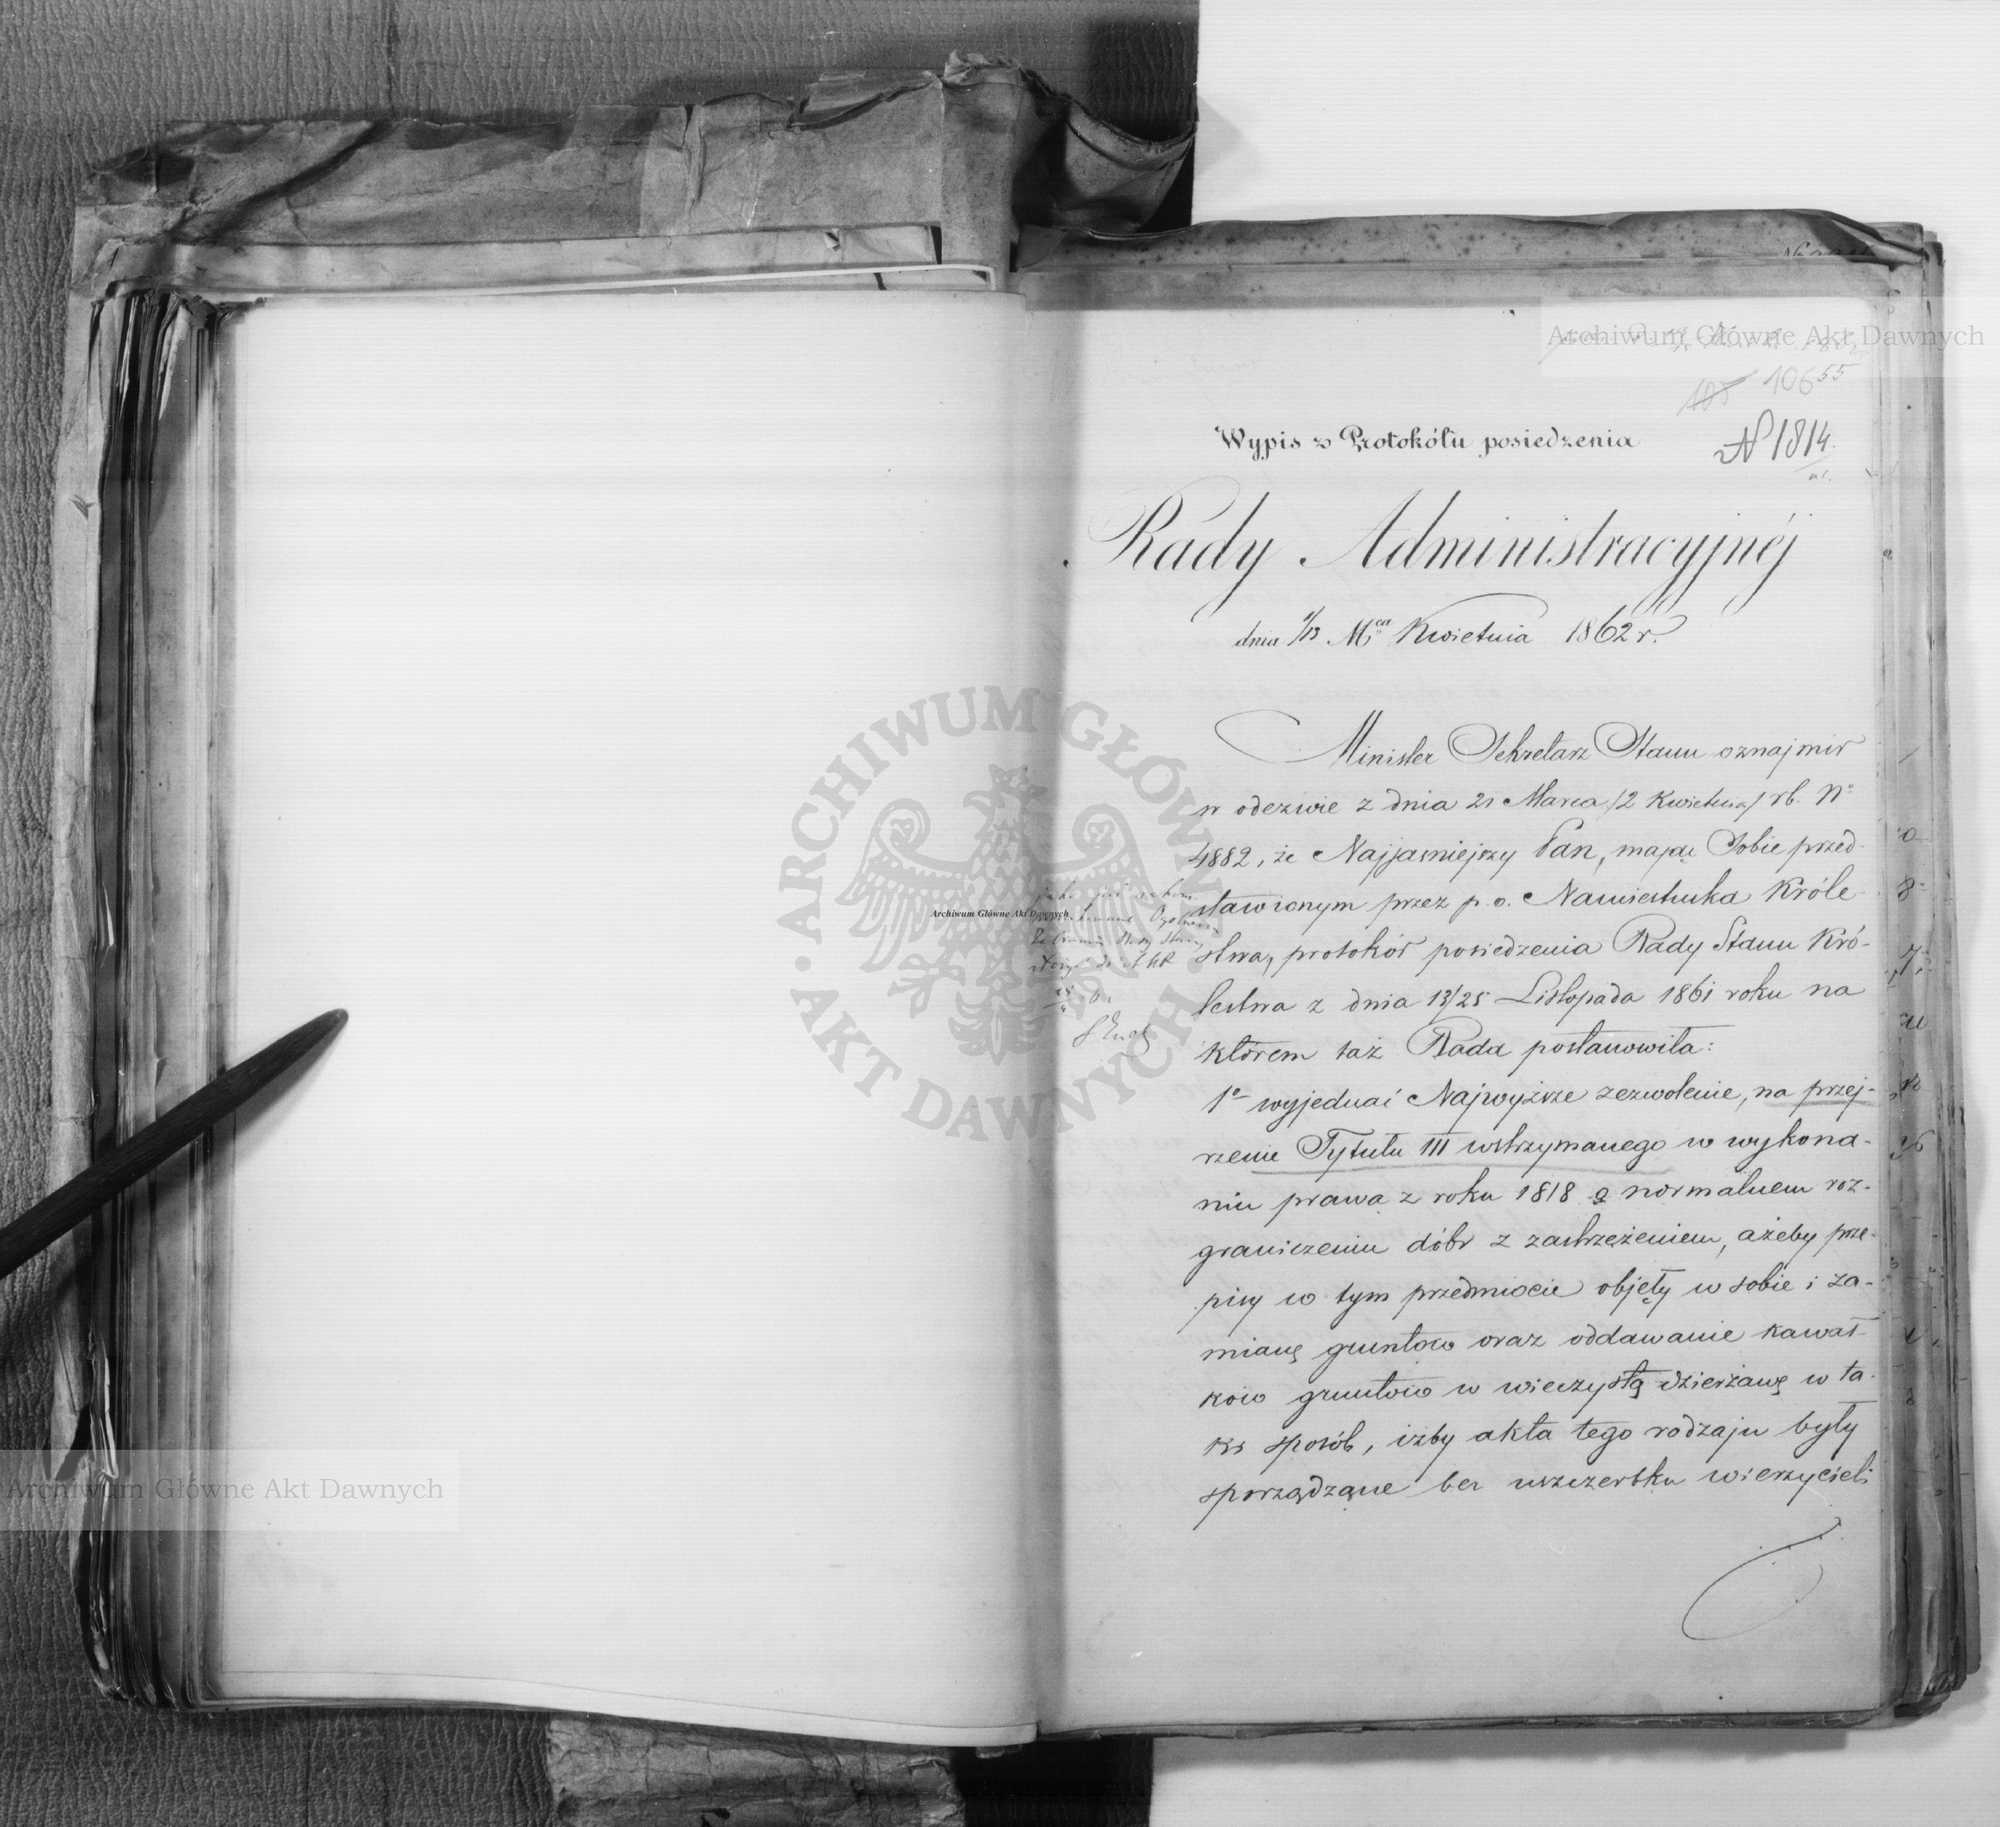 Archiwum Główne Akt Dawnych
105 10655
Wypis z Protokółu posiedzenia
N 1814.
Rady Administracyjnéj
dnia 1/13 Mca Kwietnia 1862 r.
Minister Sekretarz Stanu oznajmił
w odezwie z dnia 21 Marca /2 Kwietnia/ rb. No
4882, że Najjaśniejszy Pan, mając Sobie przed-
stawionym przez p. o. Namiestnika Króle-
stwa, protokół posiedzenia Rady Stanu Kró-
lestwa z dnia 13/25 Listopada 1861 roku na
którem taż Rada postanowiła:
1o wyjednać Najwyższe zezwolenie, na przej-
rzenie Tytułu III wstrzymanego w wykona-
niu prawa z roku 1818 o normalnem roz-
graniczeniu dóbr z zastrzeżeniem, ażeby prze-
pisy w tym przedmiocie objęły w sobie i za-
mianę gruntów oraz oddawanie kawał-
ków gruntów w wieczystą dzierżawę w ta-
ki sposób, iżby akta tego rodzaju były
sporządzane bez uszczerbku wierzycieli
jako już
Archiwum Główne Akt Dawnych
ARCHIWUM GŁÓWNE AKT DAWNYCH
Archiwum Główne Akt Dawnych